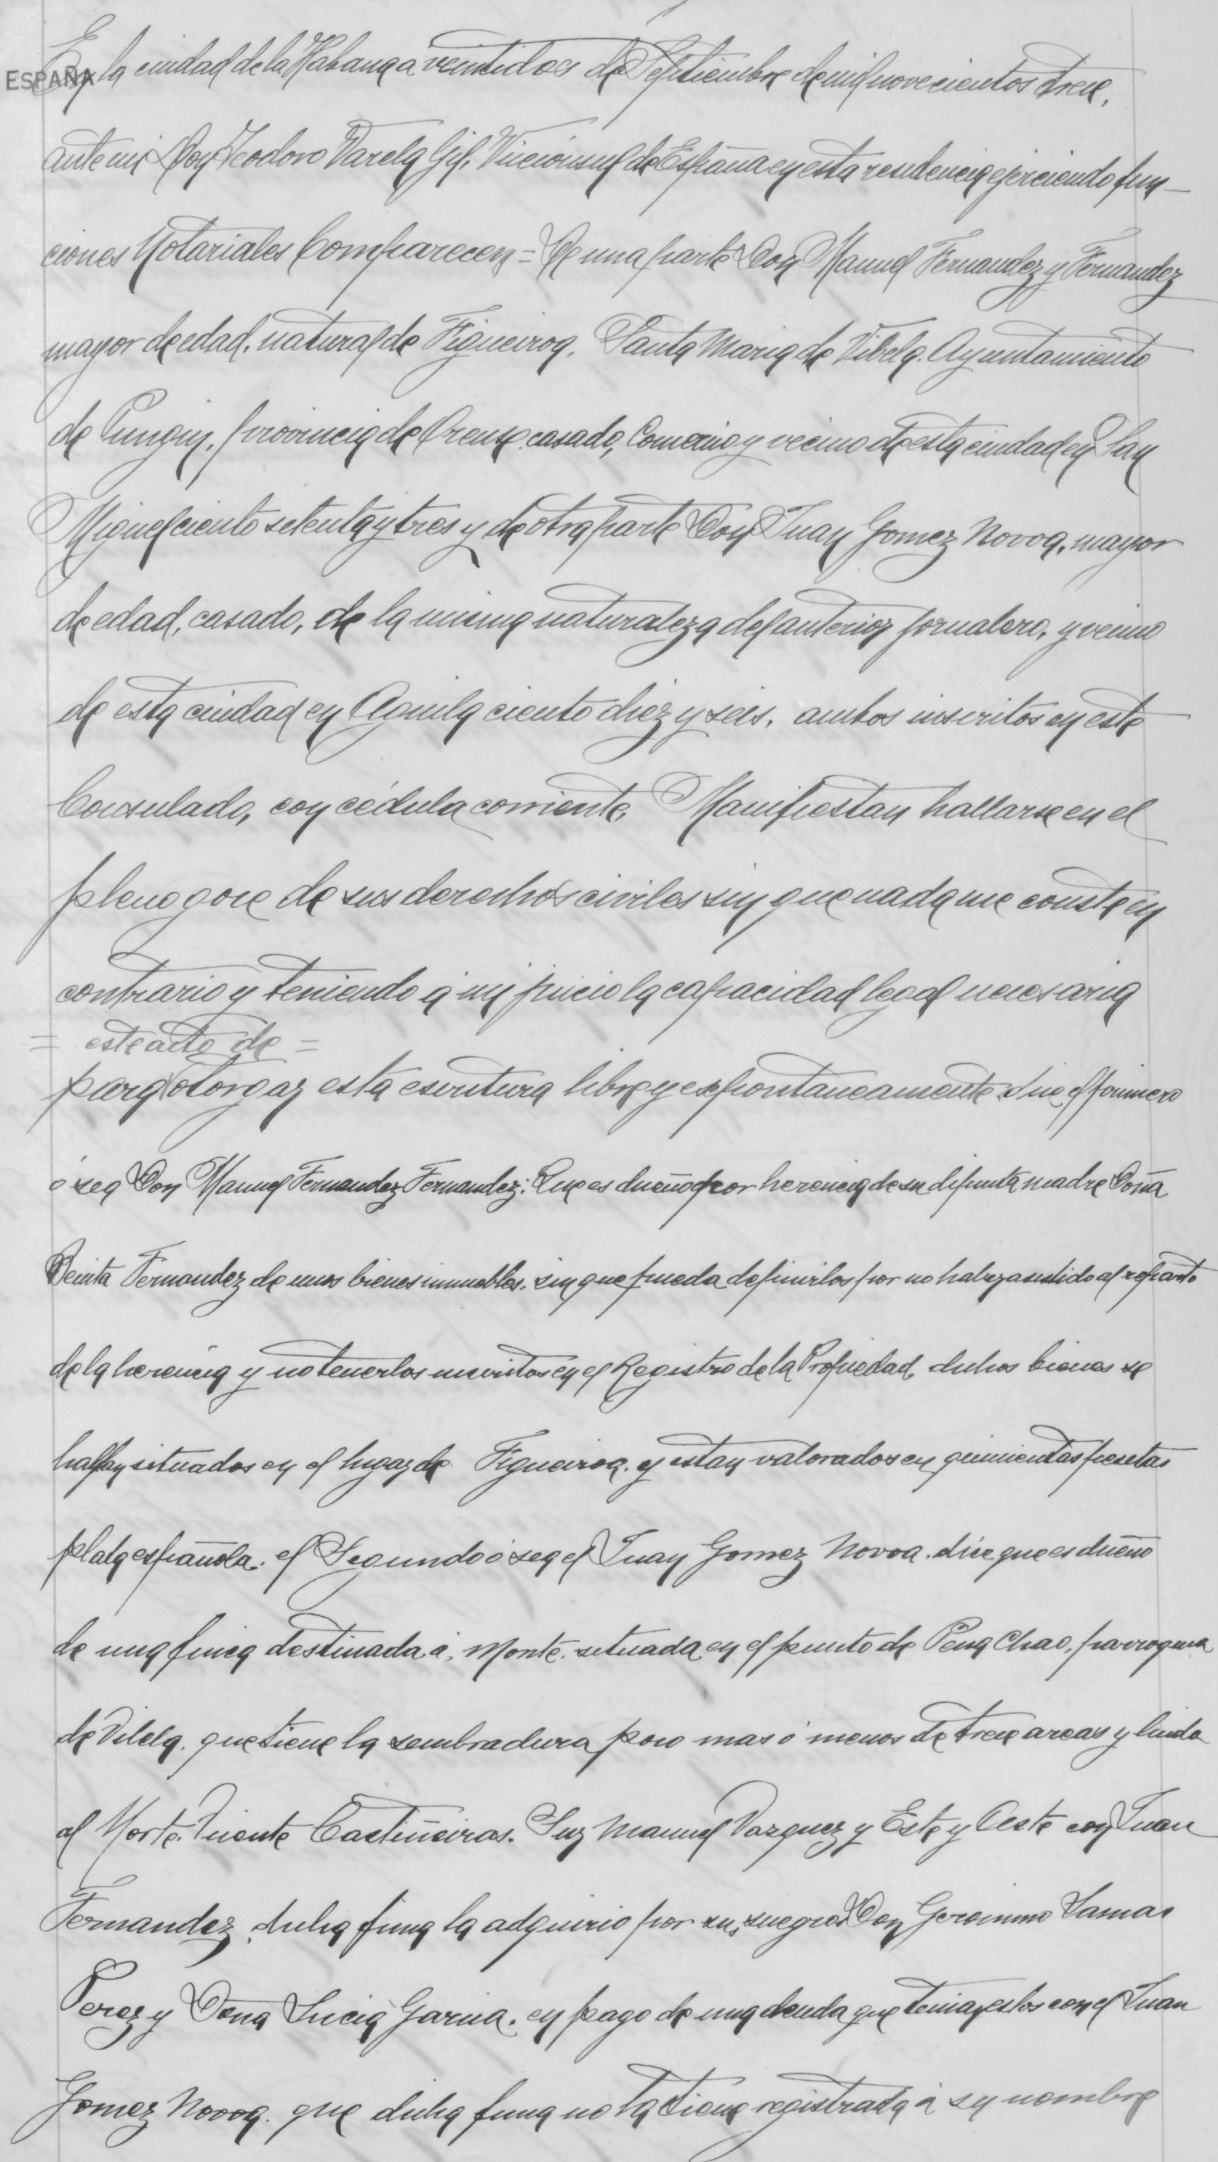 ESPAÑA
En la ciudad de la Habana a veintidos de Septiembre de mil novecientos trece,
ante mi Don Teodoro Varela Gil, Vicecónsul de España en esta residencia ejerciendo fun-
ciones Notariales Comparecen = De una parte Don Manuel Fernandez y Fernandez
mayor de edad, natural de Figueiroa, Santa Maria de Vilela, Ayuntamiento
de Pungin, provincia de Orense casado, Comercio y vecino de esta ciudad en San
Miguel ciento setenta y tres y de otra parte Don Juan Gomez Novoa, mayor
de edad, casado, de la misma naturaleza del anterior jornalero, y vecino
de esta ciudad en Aguila ciento diez y seis, ambos inscritos en este
Consulado, con cédula corriente. Manifiestan hallarse en el
pleno goce de sus derechos civiles sin que nada me conste en
contrario y teniendo a mi juicio la capacidad legal necesaria
= este acto de =
para otorgar esta escritura libre y espontaneamente dice el primero
ó sea Don Manuel Fernandez Fernandez: Que es dueño por herencia de su difunta madre Doña
Benita Fernandez de unos bienes inmuebles, sin que pueda definirlos por no haber asistido al reparto
de la herencia y no tenerlos inscritos en el Registro de la Propiedad, dichos bienes se
hallan situados en el lugar de Figueiroa. y estan valorados en quinientas pesetas
plata española. el Segundo ó sea el Juan Gomez Novoa. dice que es dueño
de una finca destinada á, Monte. situada en el punto de Pena Chao, parroquia
de Vilela. que tiene la sembradura poco mas ó menos de trece areas y linda
al Norte. Vicente Castiñeiras. Sur Manuel Vazquez y Este y Oeste con Juan
Fernandez. dicha finca la adquirio por sus suegros Don Geronimo Lamas
Perez y Doña Lucia Garcia. en pago de una deuda que tenian estos con el Juan
Gomez Novoa. que dicha finca no la tiene registrada á su nombre